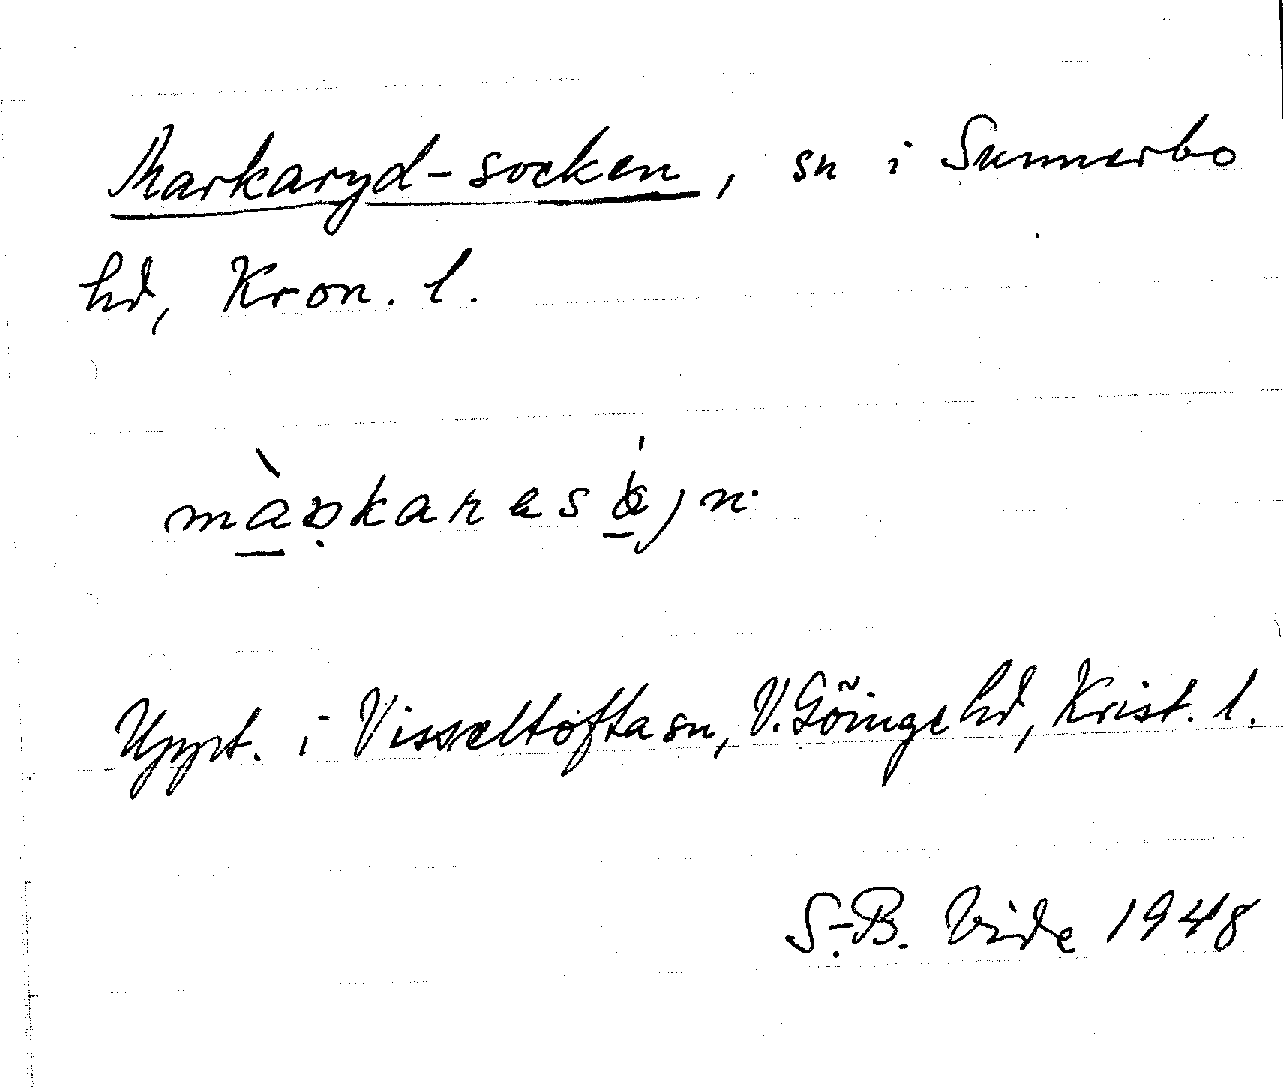 Markaryd-socken, sn i Sunnerbo
hd, Kron. l.
Uppt. i Visseltofta sn, V. Göinge hd, Krist. l.
S.-B. Vide 1948